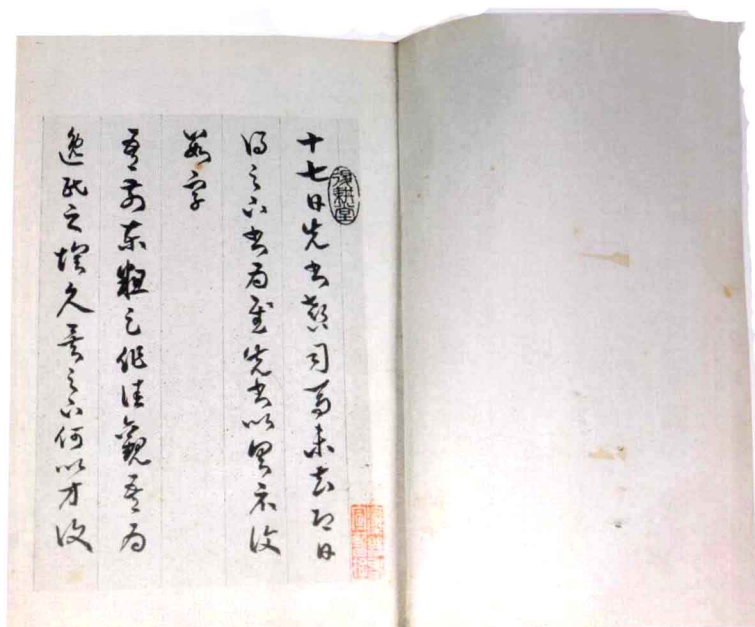 十七日先書郗司馬未去即日
得足下書為慰先書以具示復
數字
吾前東粗足作佳觀吾為
逸民之懷久矣足下何以方復